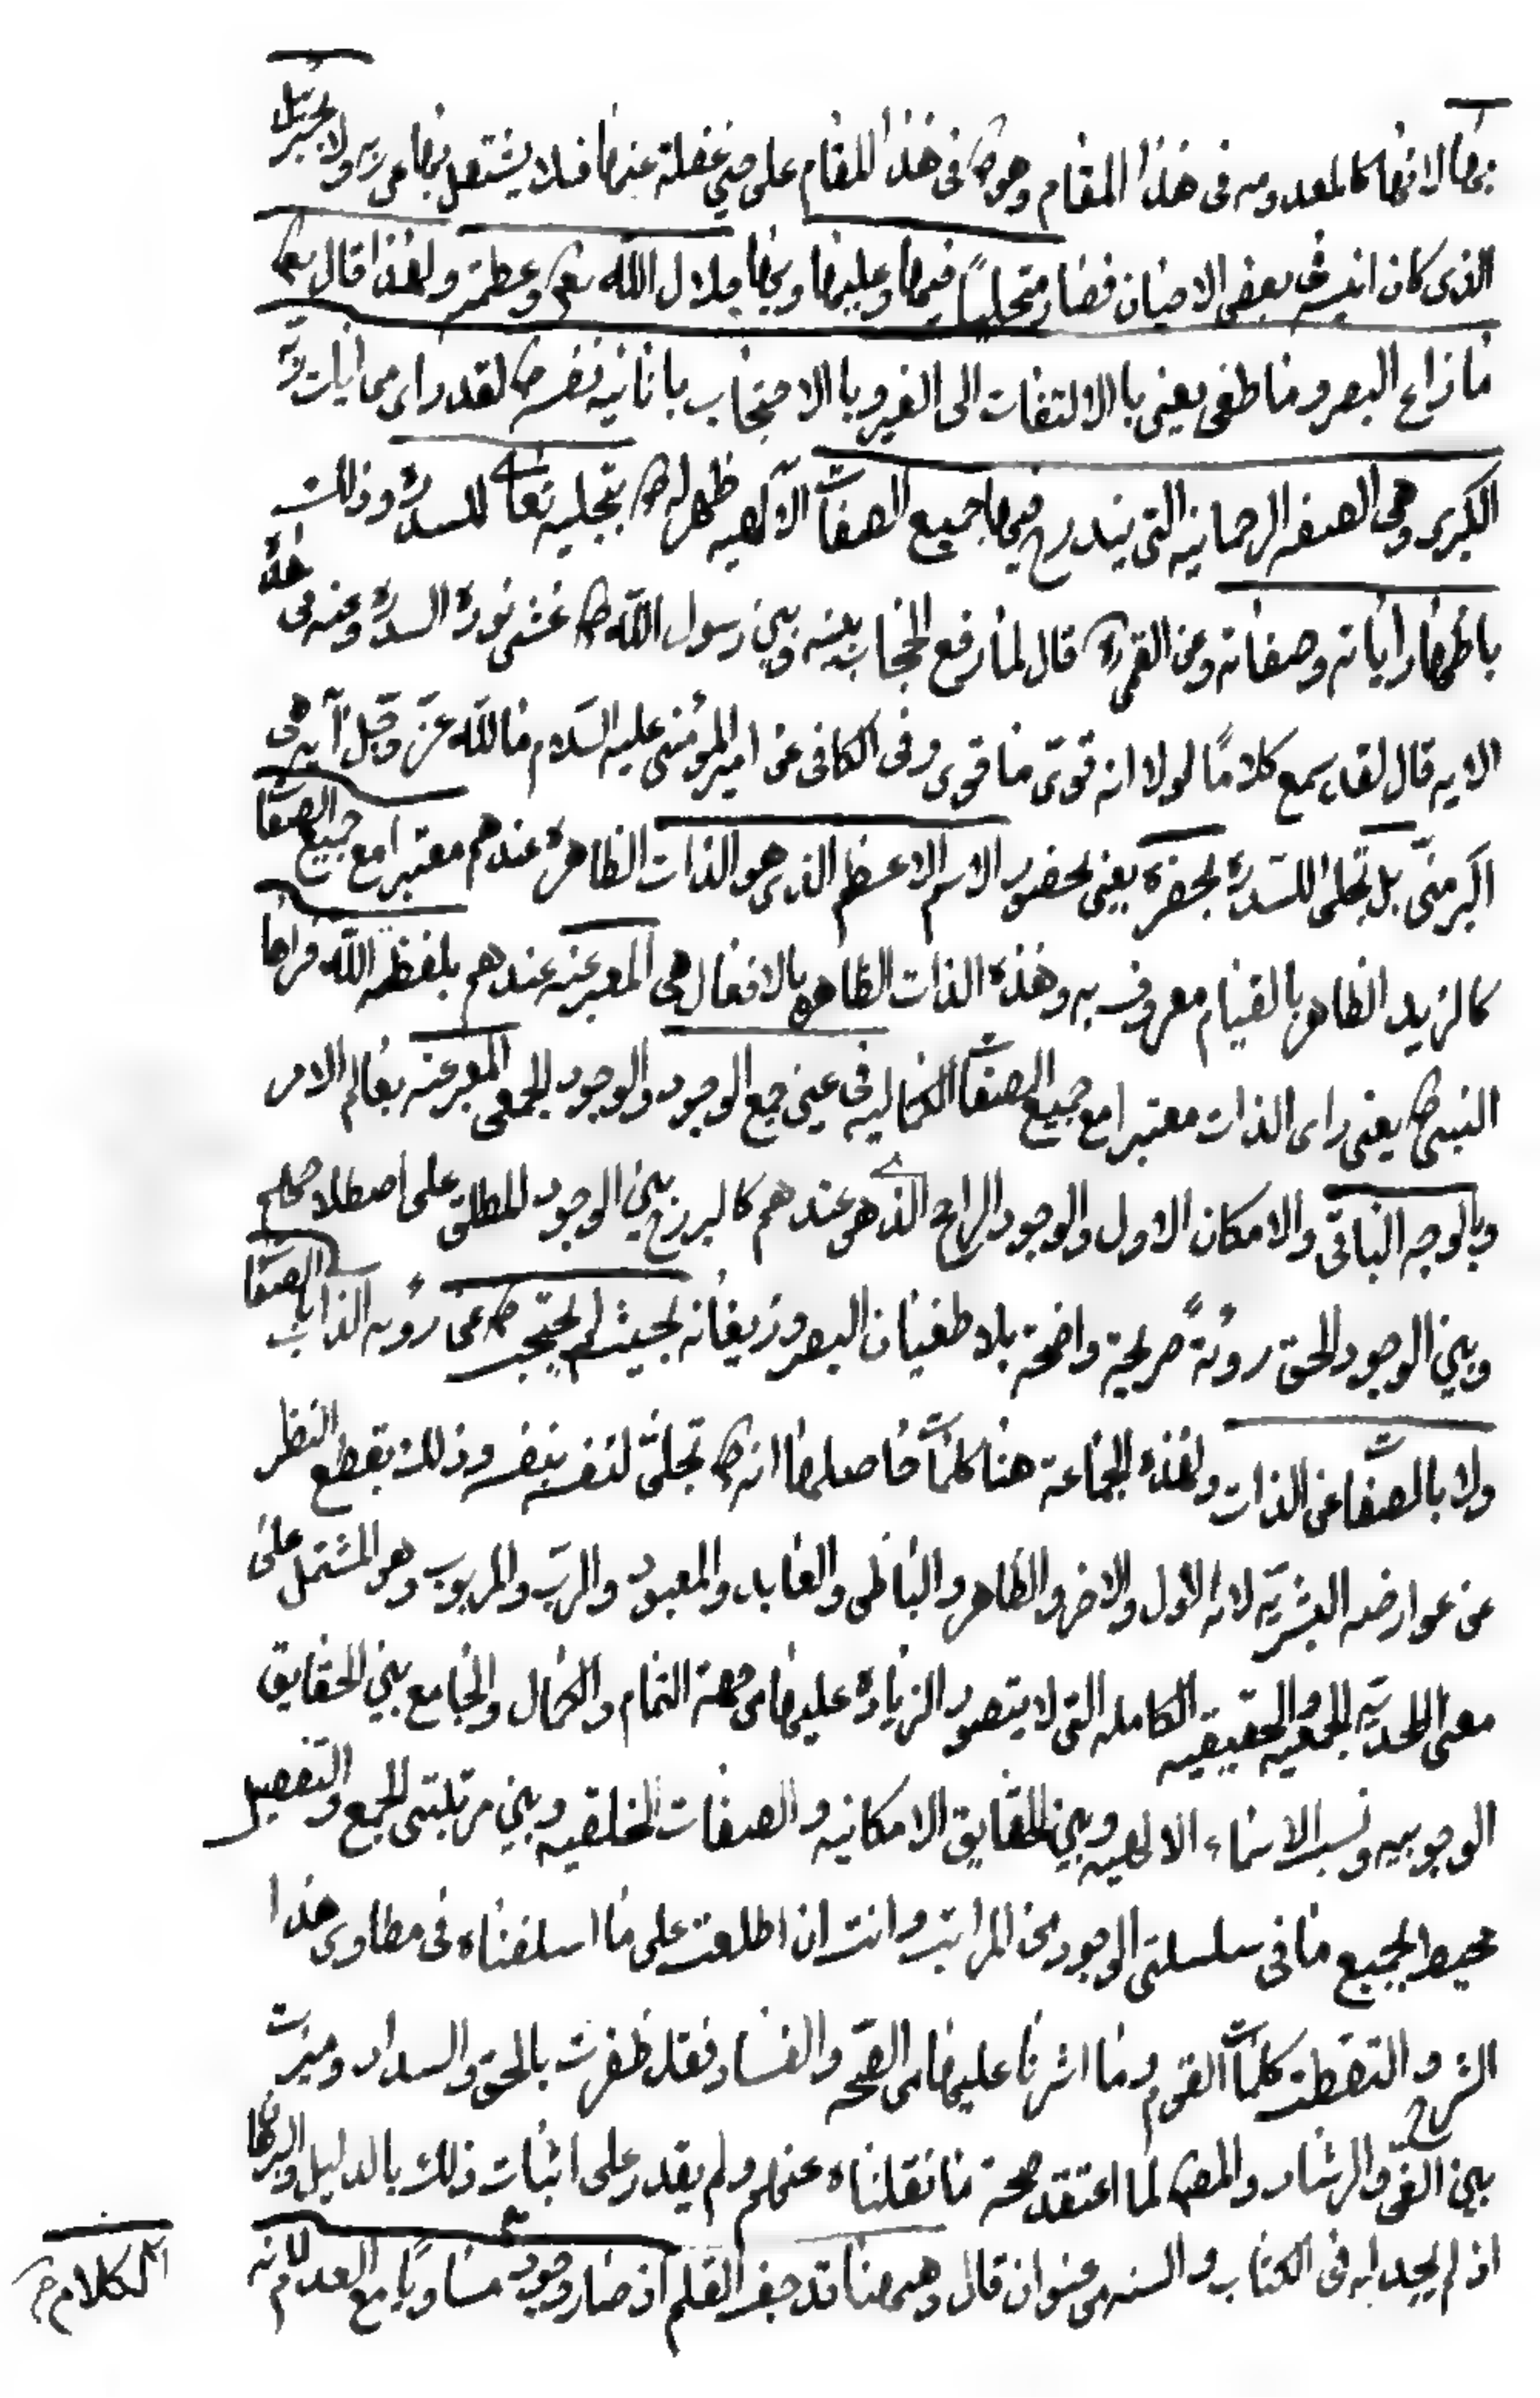 بها لانها كالمعدومه فى هذا المقام وهو ص فى هذا المقام على حين غفلة عنها فلا يشتغل بها عن ربه ولا بجبرئيل
الذى كان انيسه فى بعض الاحيان فصار متجلياً فيها وعليها وبها جلال الله تع وعظمته ولهذا قال تع
ما زاغ البصر وما طغى يعنى بالالتفات الى الغير وبالاحتجاب بانانية نفسه ص لقد راى من ايات ربه
الكبرى وهى الصفه الرحمانيه التى يندرج فيها جميع الصفات الآلهيه ظهر له ص بتجليه تعالى للسدرة وذلك
باظهار اياته وصفاته وعن القمى ره قال لما رفع الحجاب بينه وبين رسول الله ص غشى نوره السدرة وعنه فى هذه
الايه قال لقد سمع كلامًا لولا انه قوىّ ما قوى وفى الكافى عن امير المؤمنين عليه السلام ما لله عزّ وجلّ آيه هى
اكبر منّى بل تجلى للسدرة بحضرة يعنى بحضور الاسم الاعظم الذى هو الذات الظاهرة عندهم معتبرا مع جميع الصفات
كالزيد الظاهر بالقيام معروف به وهذه الذات الظاهره بالافعال هى المعبر عنه عندهم بلفظه الله فراها
النبى ص يعنى راى الذات معتبرا مع جميع الصفات الكماليه فى عين جمع الوجود والوجود الجمعى المعبر عنه بعالم الامر
وبالوجه الباقى والامكان الاول والوجود الراجح الذى هو عندهم كالبرزخ بين الوجود المطلق على اصطلاحهم
وبين الوجود الحق رؤيةً صريحة واضحة بلا طغيان البصر وزيغانه بحيث لم يحتجب ص عن رؤيه الذات بالصفات
ولا بالصفات عن الذات ولهذه الجماعة هنا كلمات حاصلها انه ص تجلىّ لنفسه بنفسه وذلك بقطع النظر
عن عوارضه البشريّه لانه الاول والاخر والظاهر والباطن والعابد والمعبود والربّ والمربوب وهو المشتمل على
معنى الاحديّه الجمعيه الحقيقيه الكامله التى لا يتصور الزيادة عليها من جهة التمام والكمال والجامع بين الحقايق
الوجوبيه ونسب الاسماء الالهيه وبين الحقايق الامكانيه والصفات الخلقيه وبين مرتبتى الجمع والتفصيل
محيط بجميع ما فى سلسلتى الوجود من المراتب وانت ان اطلعت على ما اسلفناه فى مطاوى هذا
الشرح والتقطت كلمات القوم وما اشرنا عليها من الصّحه والفساد فقد ظفرت بالحق والسداد وميزت
بين الغىّ والرشاد والمص لما اعتقد صحة ما نقلناه عنهم ولم يقدر على اثبات ذلك بالدليل والبرهان
اذ لم يجد له فى الكتاب والسنه من عنوان قال وههنا قد جف القلم اذ صار وجوده مساويًا مع العدم لانه
الكلام م